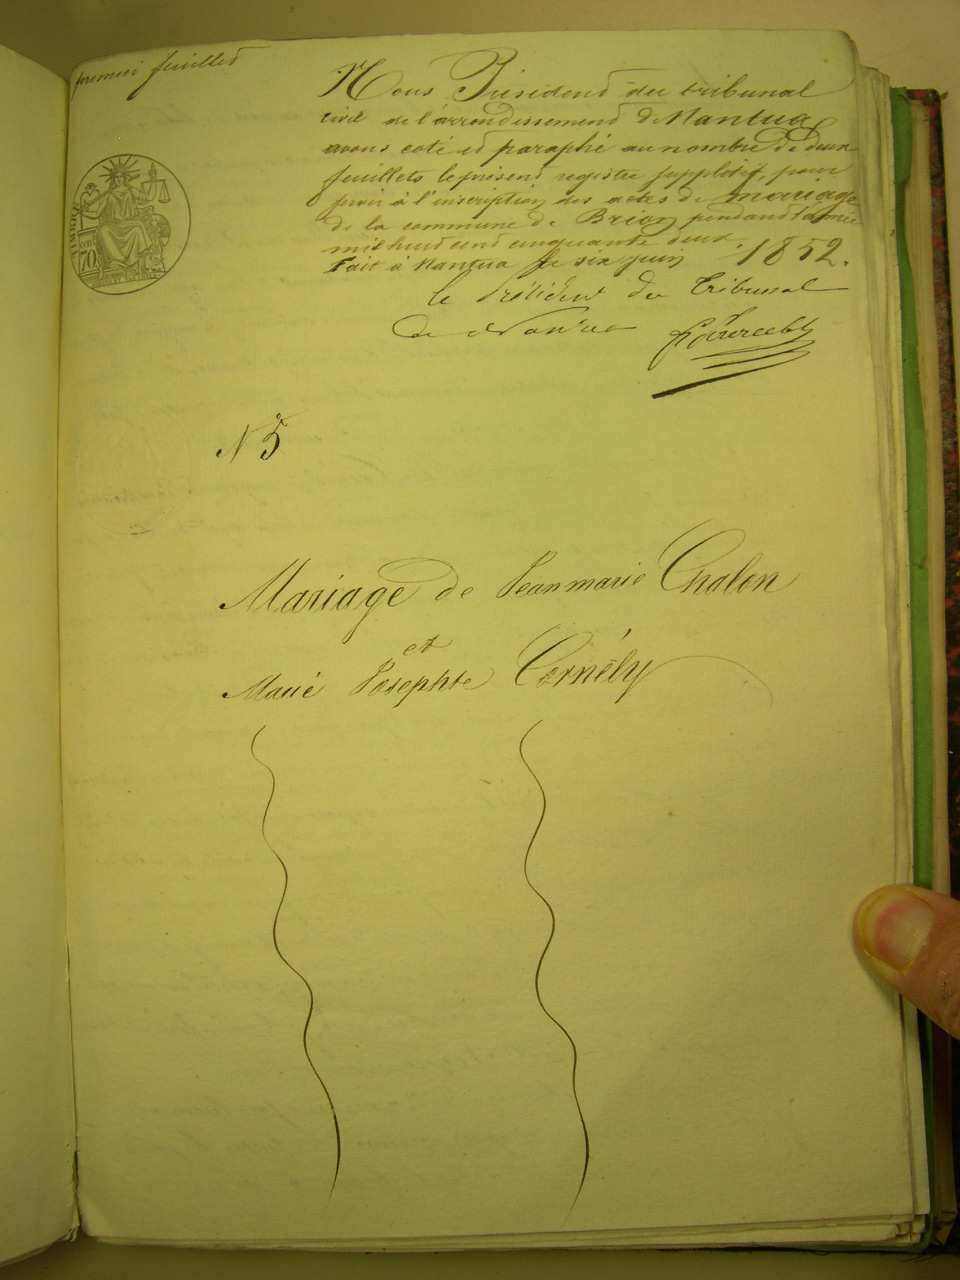 premier feuillet
Nous Président du tribunal
civil de l'arrondissement de Nantua
avons coté et paraphé au nombre de deux
feuillets le présent registre supplétif, pour
servir à l'inscription des actes de mariage
de la commune de Brion pendant l'année
mil huit cent cinquante deux. 1852.
Fait à Nantua le six juin
le Président du Tribunal
de Nantua
TIMBRE
70
N 5
Mariage de Jeanmarie Chalon
et
Marie Josephte Cernély